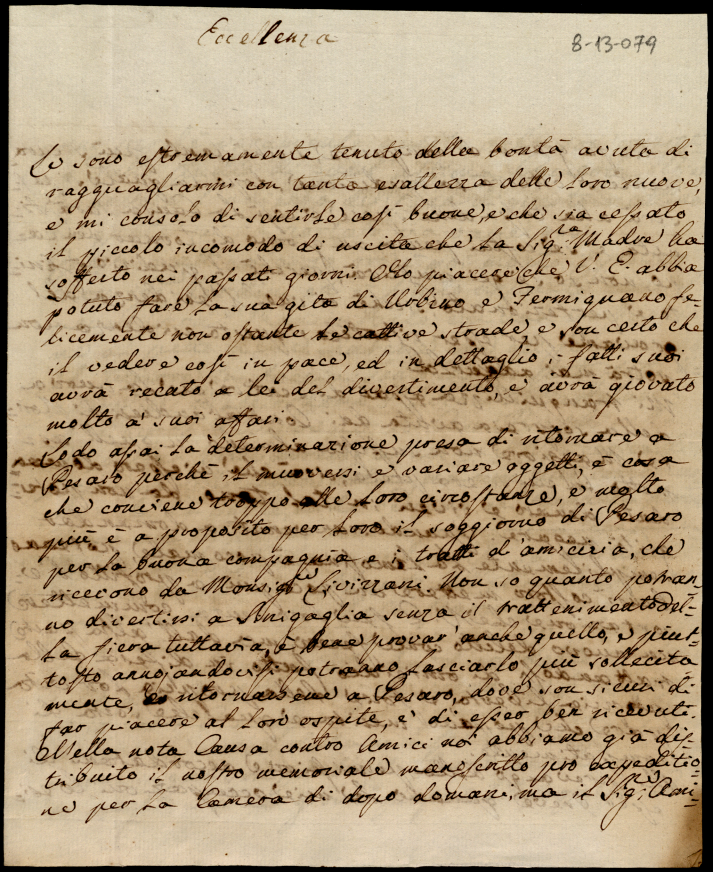 Eccellenza
8-13-079
Le sono estremamente tenuto della bontà avuta di
ragguagliarmi con tanta esattezza delle Loro nuove,
e mi consolo di sentirle così buone, e che sia cessato
il piccolo incomodo di uscita che la Sig.ra Madre ha
sofferto nei passati giorni. Ho piacere che V. E. abbia
potuto fare la sua gita di Urbino e Fermignano fe-
licemente non ostante le cattive strade e son certo che
il vedere così in pace, ed in dettaglio i fatti suoi
avrà recato a lei del divertimento, e avrà giovato
molto a' suoi affari.
Lodo assai la determinazione presa di ritornare a
Pesaro perchè il muoversi e variare oggetti, è cosa
che conviene troppo alle Loro circostanze, e molto
più è a proposito per Loro il soggiorno di Pesaro
per la buona compagnia e i tratti d'amicizia, che
ricecono da Monsig.re Livizzani. Non so quanto potran-
no divertirsi a Sinigaglia senza il trattenimento del-
la fiera tuttavia, è bene provar' anche quello, e piut-
tosto annojandovisi potranno lasciarlo più sollecita
mente, e ritornarsene a Pesaro, dove son sicuri di
far piacere al Loro ospite, e di esser ben ricevuti.
Nella nota Causa contro Amici noi abbiamo già dis-
tribuito il nostro memoriale manoscritto pro expeditio-
ne per la Camera di dopo domani, ma il Sig.r Ami-